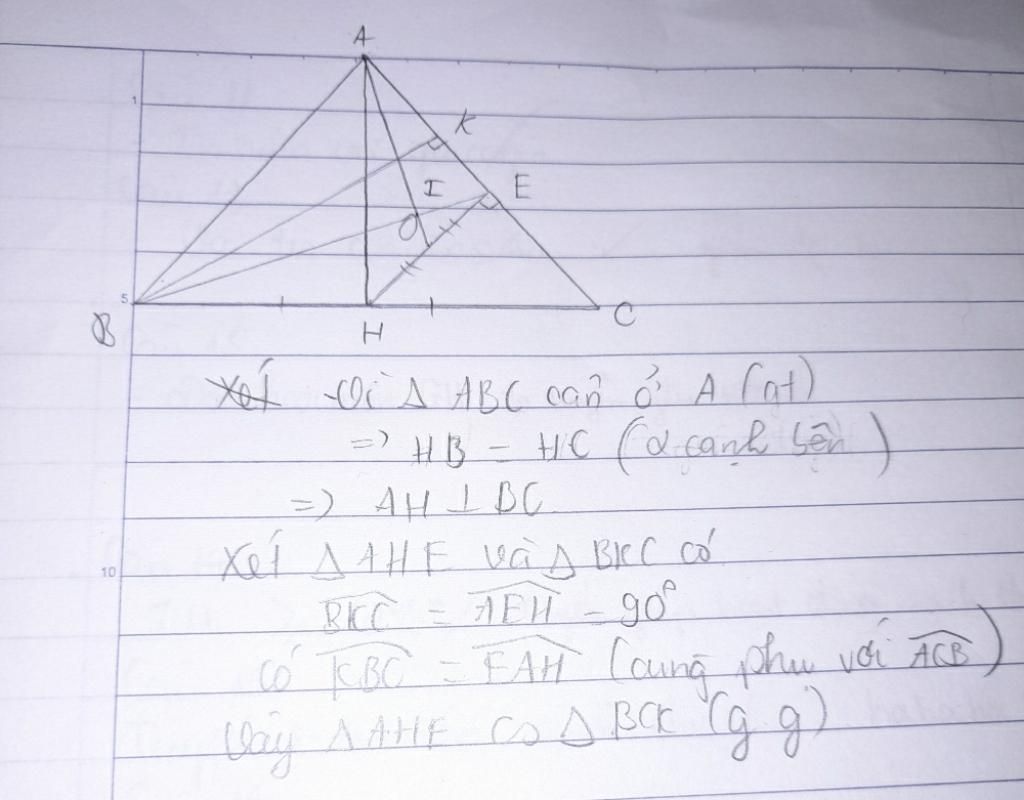 A
1
K
I
E
O
5
B
H
C
Xét Vì Δ ABC cân ở A (gt)
=> HB = HC (2 cạnh bên)
=> AH ⊥ BC
Xét Δ AHE và Δ BKC có
10
BKC = AEH = 90°
có KBC = EAH (cùng phụ với ACB)
Vậy Δ AHE ∽ Δ BCK (g g)